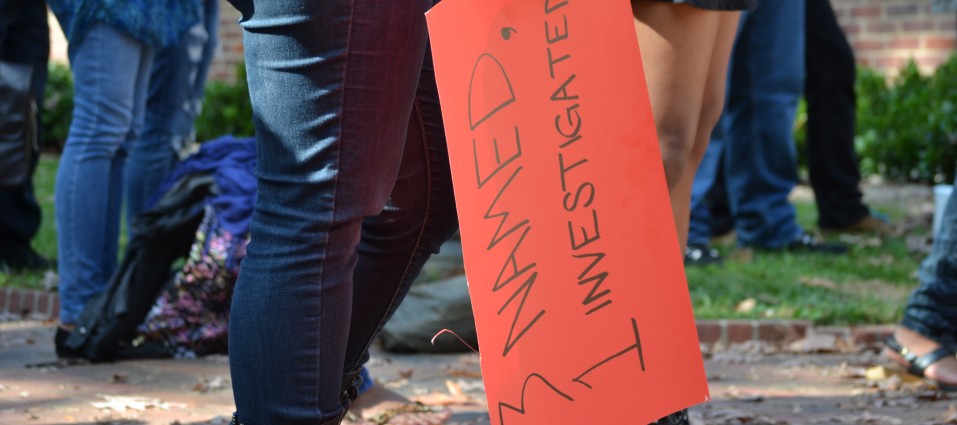 3 NAMED,
1 INVESTIGATED